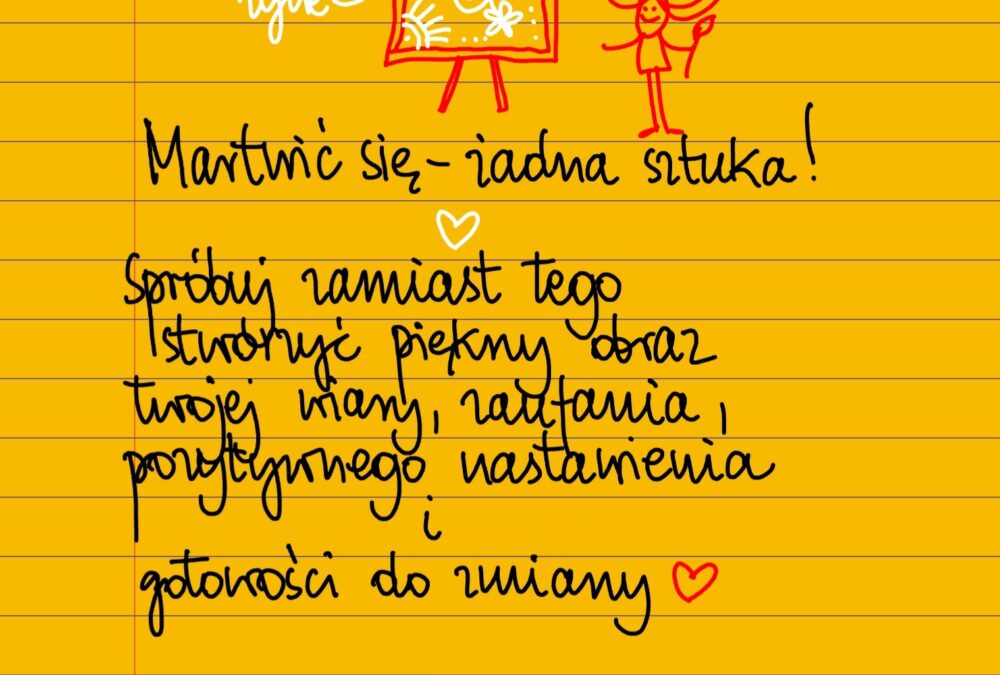 Martwić się – żadna sztuka!
Spróbuj zamiast tego
stworzyć piękny obraz
twojej wiary, zaufania,
pozytywnego nastawienia
i
gotowości do zmiany